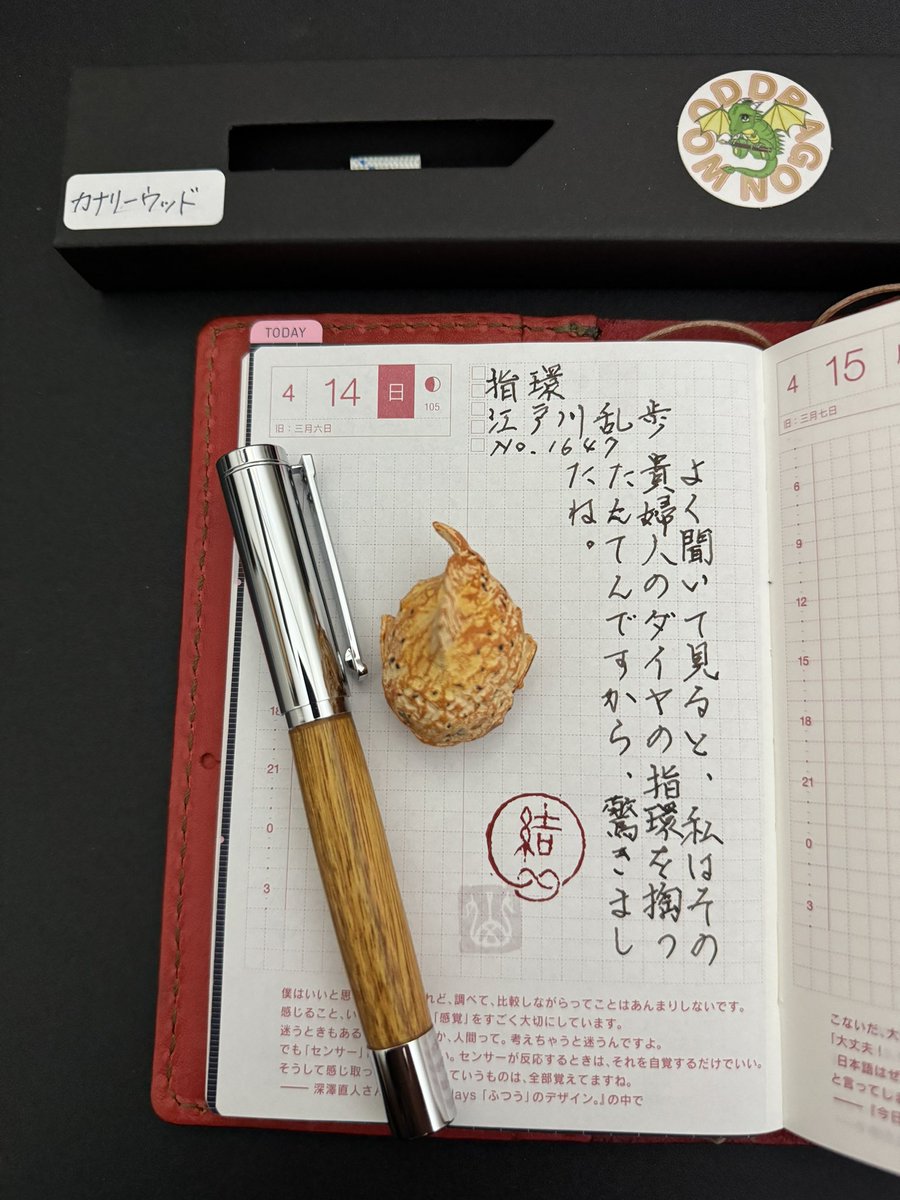 カナリーウッド
WOOD DRAGON
TODAY
4 14 日
105
旧:三月六日
指環
江戸川乱歩
No.1647
よく聞いて見ると、私はその
貴婦人のダイヤの指環を掏っ
たんてんですから、驚きまし
たね。
18
21
0
3
結
僕はいいと思 れど、調べて、比較しながらってことはあんまりしないです。
感じること、い 「感覚」をすごく大切にしています。
迷うときもある か、人間って。考えちゃうと迷うんですよ。
でも「センサー」 い。センサーが反応するときは、それを自覚するだけでいい。
そうして感じ取っ ていうものは、全部覚えてますね。
── 深澤直人さん days 「ふつう」のデザイン。』の中で
4 15
旧:三月七日
6
9
12
15
18
21
0
3
こないだ、大
「大丈夫!
日本語はぜ
と言ってしま
──『今日